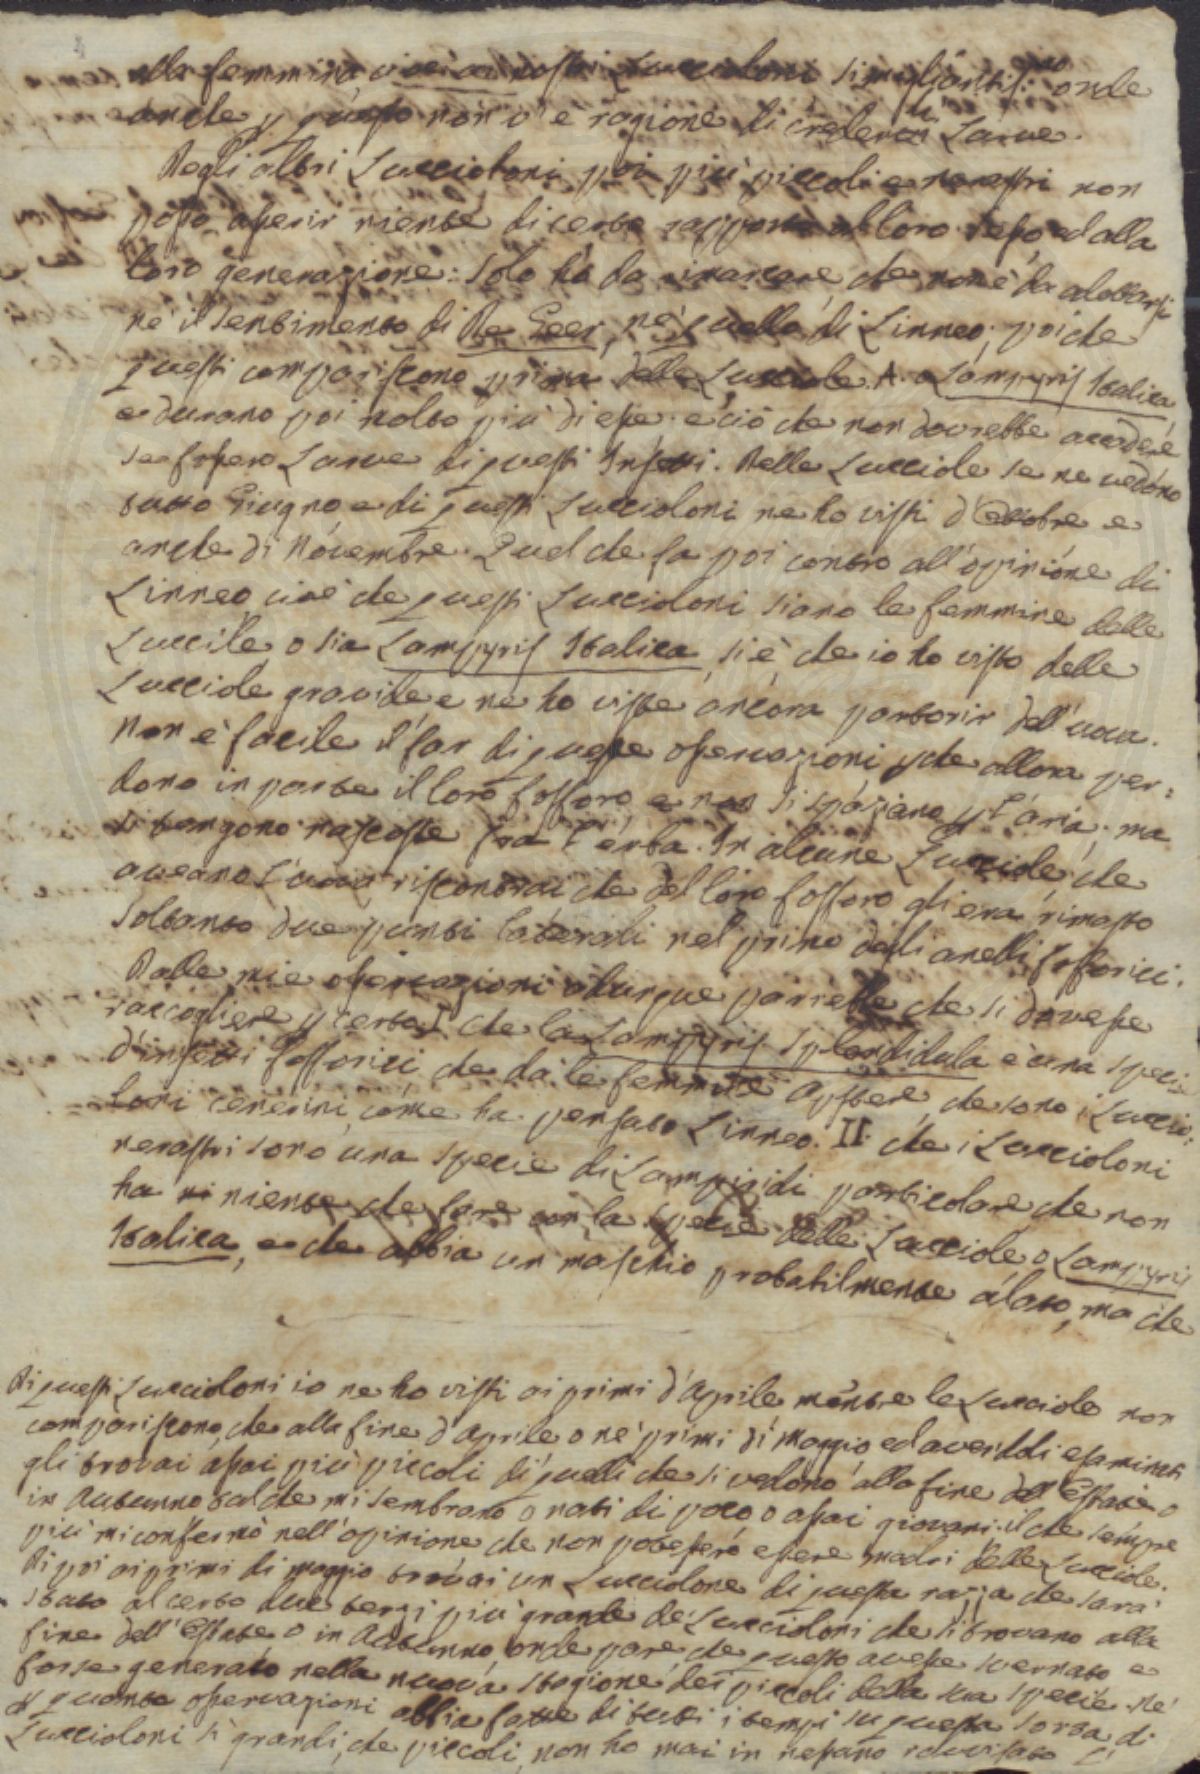 alla femmina, vicini ai nostri Luccioloni simigliantiss:mo onde
anche p questo non v'è ragione di crederli Larve.
Degli altri Luccioloni poi più piccoli e nerastri non
posso asserir niente di certo rapporto al loro sesso ed alla
loro generazione: solo ho da rimarcare che non è da adottarsi
nè il sentimento di De Geer, nè quello di Linneo; poichè
questi compariscono prima delle Lucciole A. o Lampyris Italica
e durano poi molto più di esse: e ciò che non dovrebbe accadere
se fossero Larve di questi Insetti. Delle Lucciole se ne vedono
tutto Giugno e di questi Luccioloni ne ho visti d'Ottobre e
anche di Novembre. Quel che fa poi contro all'opinione di
Linneo, cioè che questi Luccioloni siano le femmine delle
Lucciole o sia Lampyris Italica, si è che io ho visto delle
Lucciole gravide e ne ho viste ancora partorir dell'uova.
Non è facile il far di queste osservazioni, pchè allora per=
dono in parte il loro fosforo e non si spaziano p l'aria; ma
si tengono nascoste fra l'erba. In alcune Lucciole che
aveano l'uova riscontrai che del loro fosforo gli era rimasto
soltanto due punti laterali nel primo degli anelli fosforici.
Dalle mie osservazioni adunque parrebbe che si dovesse
raccogliere p certo I. che la Lampyris splendidula è una specie
d'insetti fosforici che dà le femmine aptere, che sono i Luccio=
loni cenerini, come ha pensato Linneo. II. che i Luccioloni
nerastri sono una specie di Lampiridi particolare che non
ha niente che fare con la specie delle Lucciole o Lampyris
Italica, e che abbia un maschio probabilmente alato, ma che
Di questi Luccioloni io ne ho visti ai primi d'Aprile mentre le Lucciole non
compariscono, che alla fine d'Aprile o nè primi di Maggio ed avendoli esaminati
gli trovai assai più piccoli di quelli che si vedono alla fine dell'Estate o
in Autunno talchè mi sembrano o nati di poco o assai giovani. il che sempre
più mi confermò nell'opinione che non potessero essere madri delle Lucciole.
Di poi ai primi di maggio trovai un Lucciolone di questa razza che sarà
stato al certo due terzi più grande de' Luccioloni che si trovano alla
fine dell'Estate o in Autunno, onde pare che questo avesse svernato e
forse generato nella nuova stagione dei piccoli della sua specie. Nè
p quante osservazioni abbia fatte di tutti i tempi su questa sorta di
Luccioloni sì grandi, che piccoli, non ho mai in nessuno ravvisato